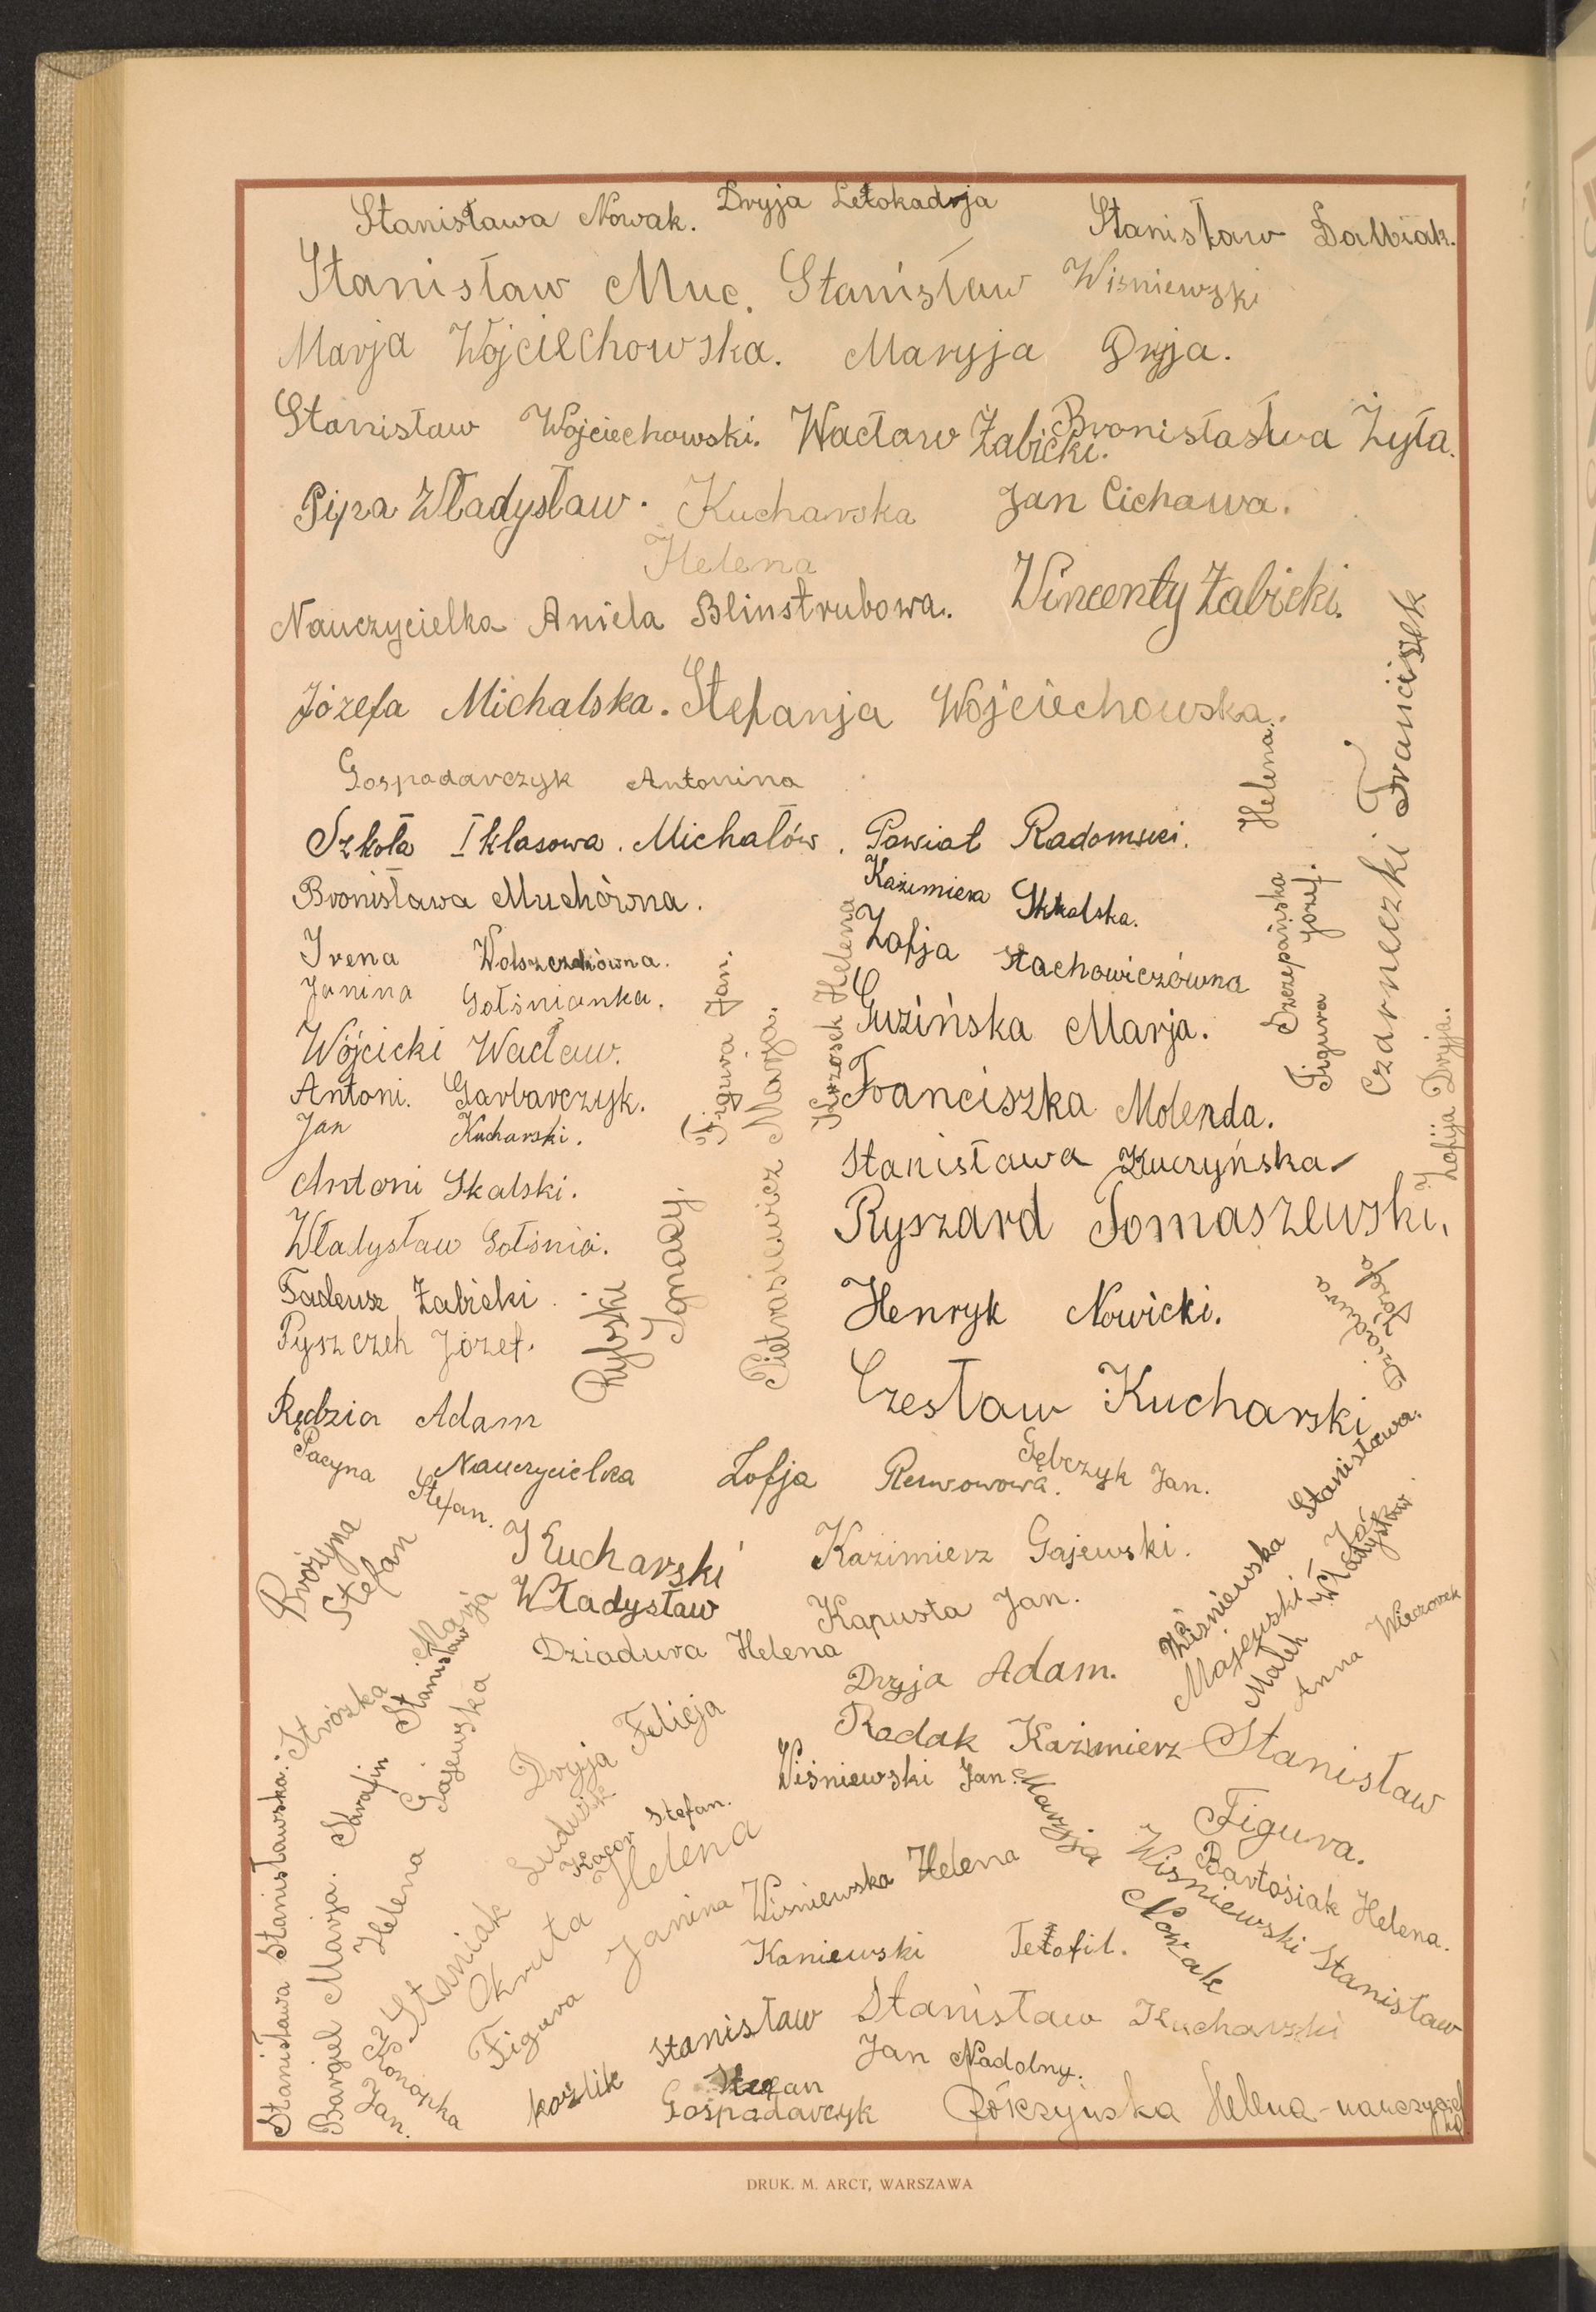 Stanisława Nowak. Dryja Letokadrja Stanisław
Stanisław Muc. Stanisław Wiśniewski
Marja Wojciechowska. Maryja Dryja.
Stanisław Wojciechowski. Wacław Żabicki. Bronisłastwa Żyła.
Pipa Władysław. Kucharska Helena Jan Cichawa.
Nauczycielka Aniela Blinstrubowa. Wincenty Żabicki.
Józefa Michalska. Stefanja Wojciechowska.
Gospodarczyk Antonina
Szkoła I klasowa. Michałów. Powiat Radomski.
Bronisława Muchówna.
Irena
Janina Gołśnianka.
Wójcicki Wacław.
Antoni. Garbarczyk.
Jan Kucharski.
Antoni Skalski.
Władysław Gołśnia.
Tadeusz Żabicki
Pyszczek Józef.
Rędzia Adam
Pacyna Stefan.
Rybski Ignacy.
Figura Jan.
Pietrasiewicz Marja.
Helena
Kazimiera Skalska.
Zofja Stachowiczówna
Guzińska Marja.
Franciszka Molenda.
Stanisława Kuczyńska
Ryszard Tomaszewski.
Henryk Nowicki.
Czesław Kucharski
Szczepańska Helena.
Figura Józef.
Czarnecki Franciszek
Zofija Dryja.
Dziadura Józefa
Nauczycielka Zofja Rewowowa.
Gębczyk Jan.
Brożyna Stefan
Kucharski Władysław
Kazimierz Gajewski.
Kapusta Jan.
Dziadura Helena
Dryja Adam.
Wiśniewska Stanisława.
Majewski
Małek Władysław
Anna Wieczorek
Radak Kazimierz
Stanisław Figura.
Wiśniewski Jan.
Maryja Nowak
Bartosiak Helena.
Wisniewski Stanisław
Stróżka Marja
Serafin Stanisław
Helena Gajewska
Stanisława Stanisławska.
Bargieł Marja.
Dryja Felicja
Staniak Ludwik
Kacor Stefan.
Okruta Helena
Figura Janina
Wiśniewska Helena
Kaniewski Teofil.
Konopka Jan.
Koźlik Stanisław
Stanisław Kucharski
Jan Nadolny.
Stefan Gospodarczyk
Helena - nauczycielka
DRUK. M. ARCT, WARSZAWA